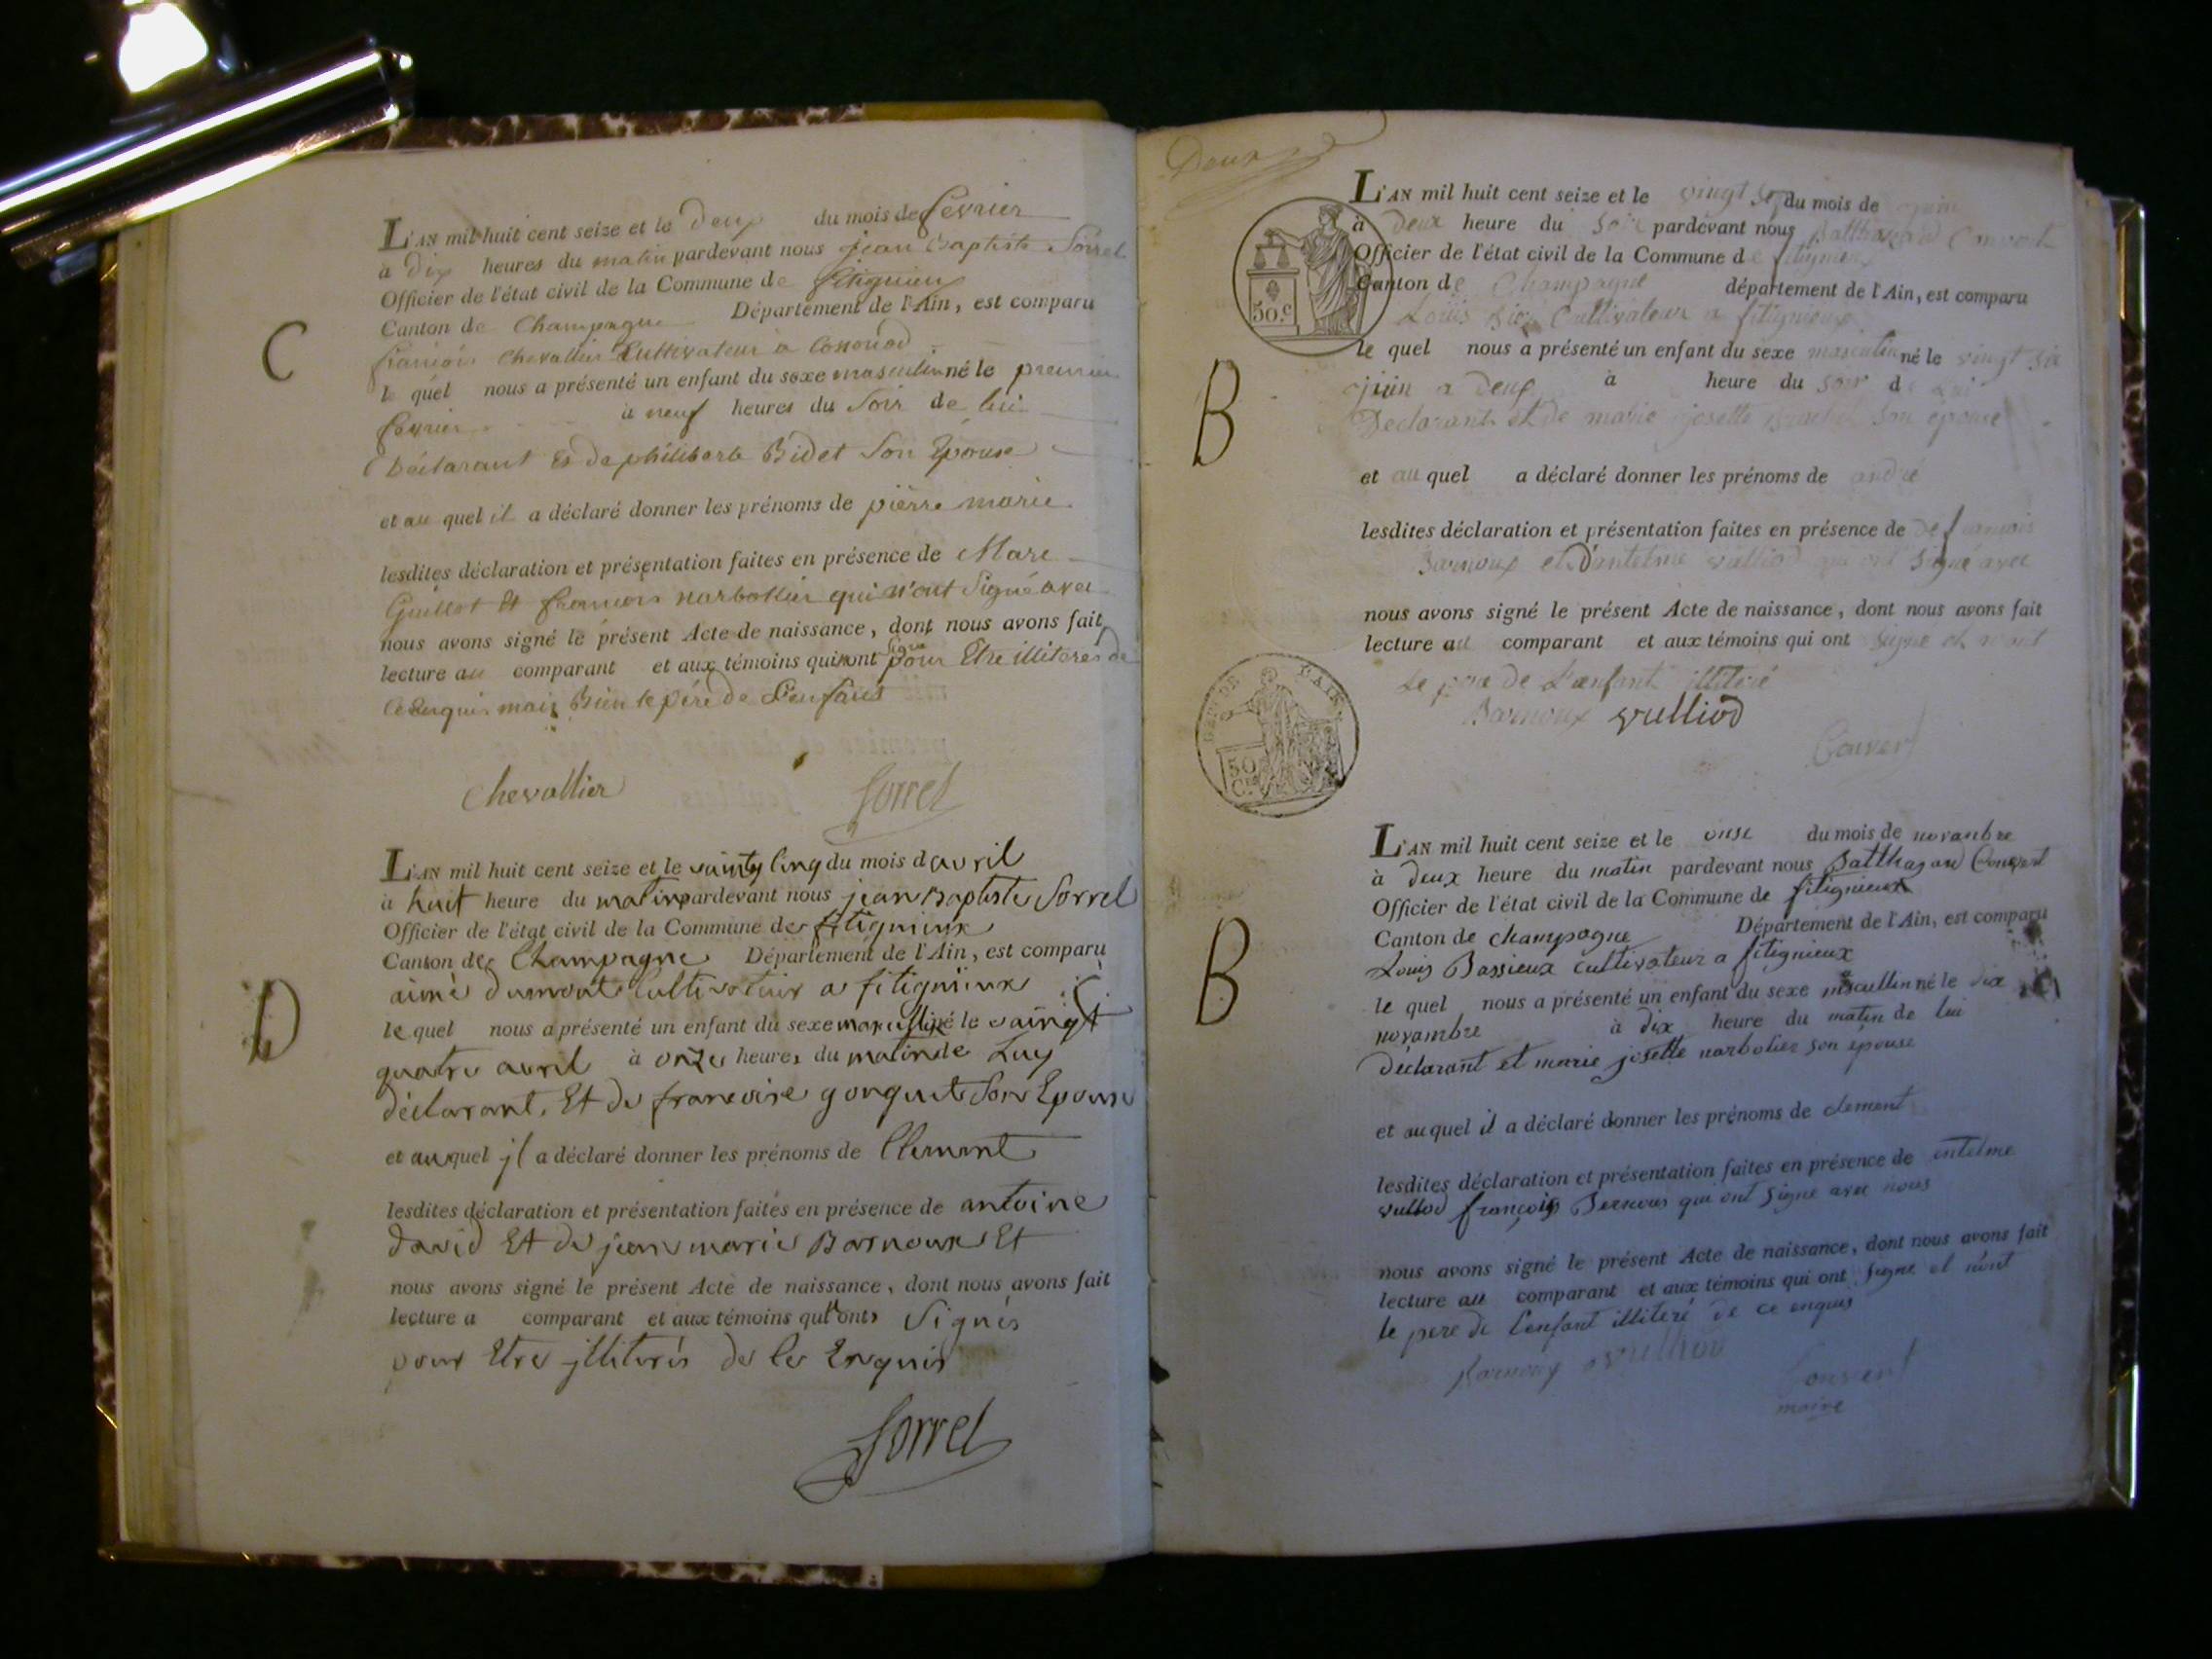 C
L'AN mil huit cent seize et le deux du mois de fevrier
à dix heures du matin pardevant nous jean Baptiste Sorrel
Officier de l'état civil de la Commune de fitignieu
Canton de Champagne Département de l'Ain, est comparu
françois Chevallier Cultivateur à
le quel nous a présenté un enfant du sexe masculin né le premier
fevrier à neuf heures du Soir de lui
Déclarant Et de philiberte Bidet Son Epouse
et au quel il a déclaré donner les prénoms de pierre marie
lesdites déclaration et présentation faites en présence de Marc
Guillot Et francois narbollier qui n'ont Signé avec
nous avons signé le présent Acte de naissance, dont nous avons fait
lecture au comparant et aux témoins qui n'ont signé pour Etre illiteres de
Ce Enquis mais Bien le pére de L'enfant
Chevallier Sorrel
D
L'AN mil huit cent seize et le vaintg Cinq du mois d avril
à huit heure du matin pardevant nous jean Baptiste Sorrel
Officier de l'état civil de la Commune de fitignieux
Canton de Champagne Département de l'Ain, est comparu
aimé dumont Cultivateur a fitignieux
le quel nous a présenté un enfant du sexe masculin né le vaingt
quatre avril à onze heures du matin de Luy
déclarant, Et de francoise gonguet Son Epouse
et au quel jl a déclaré donner les prénoms de Clement
lesdites déclaration et présentation faites en présence de antoine
david Et de jean marie Barnoux Et
nous avons signé le présent Acte de naissance, dont nous avons fait
lecture a comparant et aux témoins qui n'ont Signés
pour Etre jlliterés de Ce Enquis
Sorrel
Deux
50.c
L'AN mil huit cent seize et le vingt sep du mois de juin
à deux heure du soir pardevant nous Balthazard Convert
Officier de l'état civil de la Commune de fitignieux
Canton de Champagne département de l'Ain, est comparu
Louis Cultivateur a fitignieux
le quel nous a présenté un enfant du sexe masculin né le vingt six
juin a deux à heure du soir de Lui
Declarant et de marie josette son epouse
B
et au quel a déclaré donner les prénoms de andré
lesdites déclaration et présentation faites en présence de de francois
Barnoux et D'antelme vulliod qui ont signé avec
nous avons signé le présent Acte de naissance, dont nous avons fait
lecture au comparant et aux témoins qui ont signe et n'ont
Le pere de L'enfant illiteré
Barnoux vulliod
Convert
DEP. DE L'AIN
50 Ces
L'AN mil huit cent seize et le onse du mois de novanbre
à deux heure du matin pardevant nous Balthazard Convert
Officier de l'état civil de la Commune de fitignieux
Canton de champagne Département de l'Ain, est comparu
Louis Bassieux cultivateur a fitignieux
B
le quel nous a présenté un enfant du sexe mascullin né le dix
novambre à dix heure du matin de lui
déclarant et marie josette narbolier son épouse
et au quel il a déclaré donner les prénoms de clement
lesdites déclaration et présentation faites en présence de entelme
vulliod françois Bernoux qui ont signe avec nous
nous avons signé le présent Acte de naissance, dont nous avons fait
lecture au comparant et aux témoins qui ont signe et n'ont
le pere de l'enfant illiteré de ce enquis
Barnoux vulliod
Convert
maire